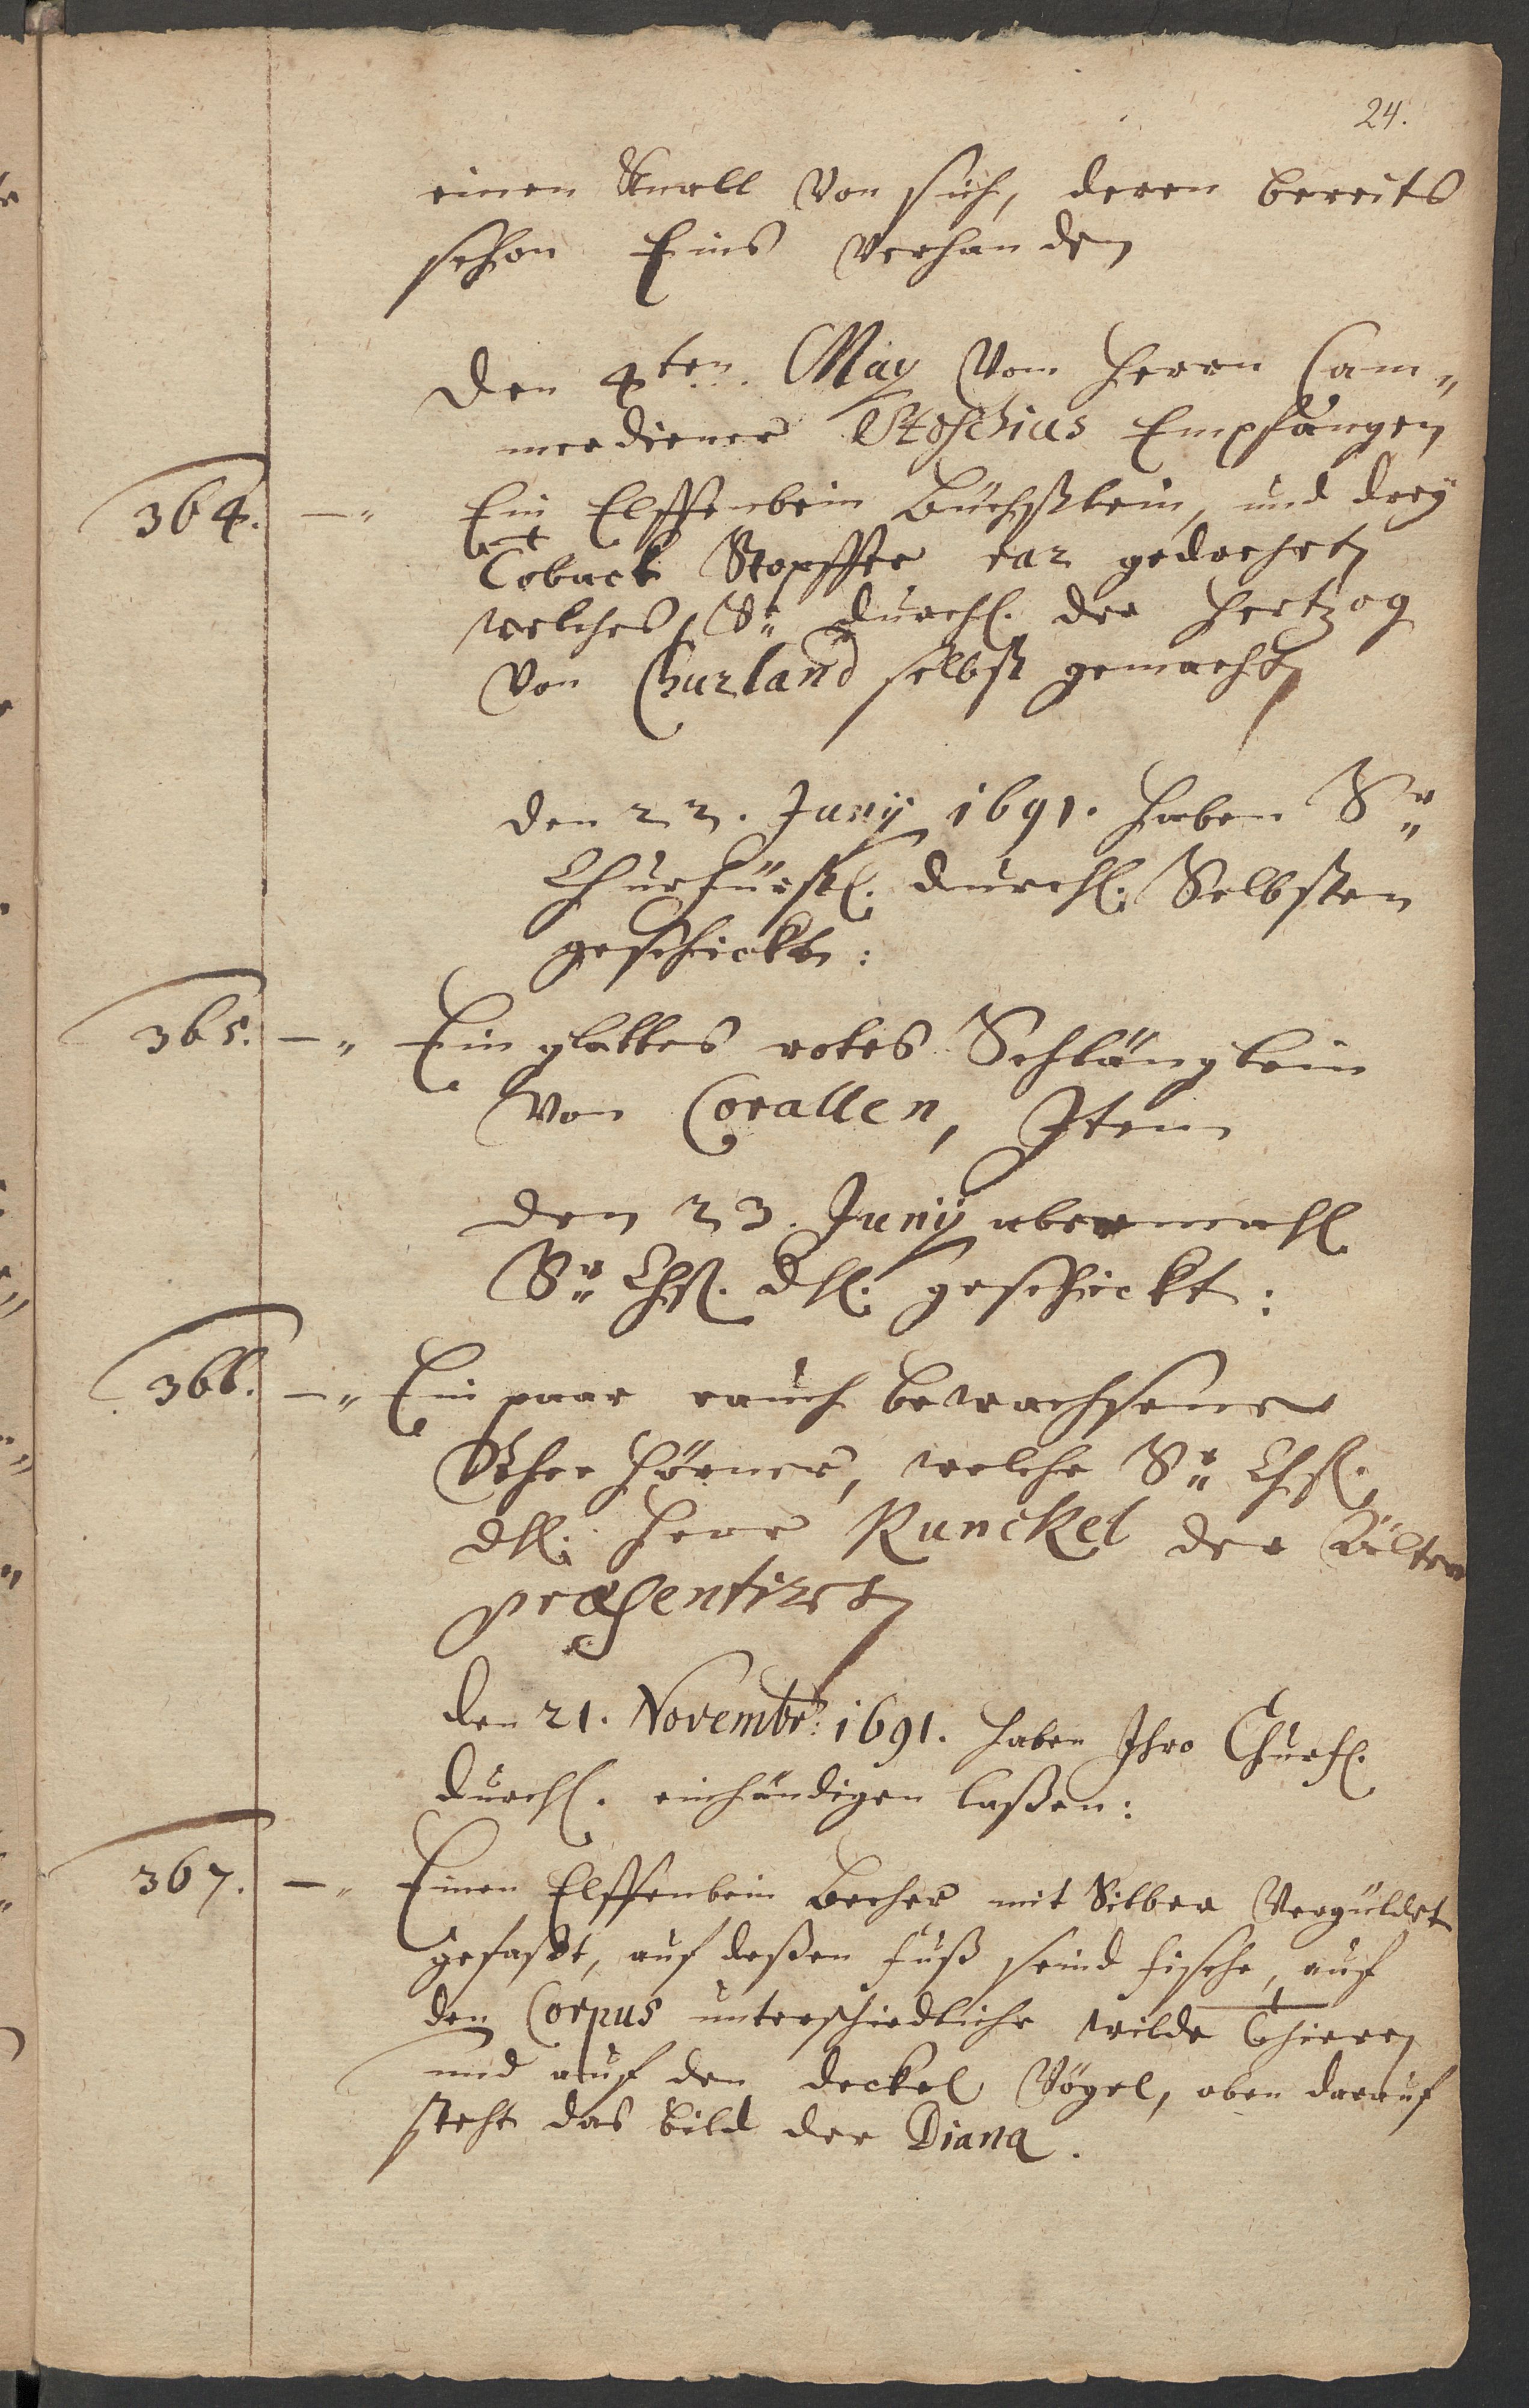 24.
einen Knall von sich, deren bereits
schon Eins verhanden
Den 4ten. May Vom Herrn Cam„
merdiener Stoschius Empfangen
364. —„ Ein Elffenbein Büchßlein, und drey
Toback Stopffer rar gedrehet
welches Sr. Durchl. der Hertzog
von Churland selbst gemacht
Den 22. Junij 1691. haben Sr.
Churfürstl. Durchl. Selbsten
geschickt:
365. —„ Ein glattes rotes Schlänglein
Von Corallen, Item
Den 23. Junij abermahl
Sr. Chfl. Dhl. geschickt:
366. —„ Ein paar rauch bewachsene
Rehe Hörner, welche Sr. Chfl.
Dhl. Herr Runckel der Älter
præsentiret
Den 21. Novembr: 1691. haben Ihro Churfl.
Durchl. einhändigen laßen:
367. —„ Einen Elffenbein Becher mit Silber Vergüldet
gefaßt, auf deßen Fuß seind Fische, auf
den Corpus unterschiedliche wilde Thieren
und auf den deckel Vögel, oben darauf
steht das bild der Diana.